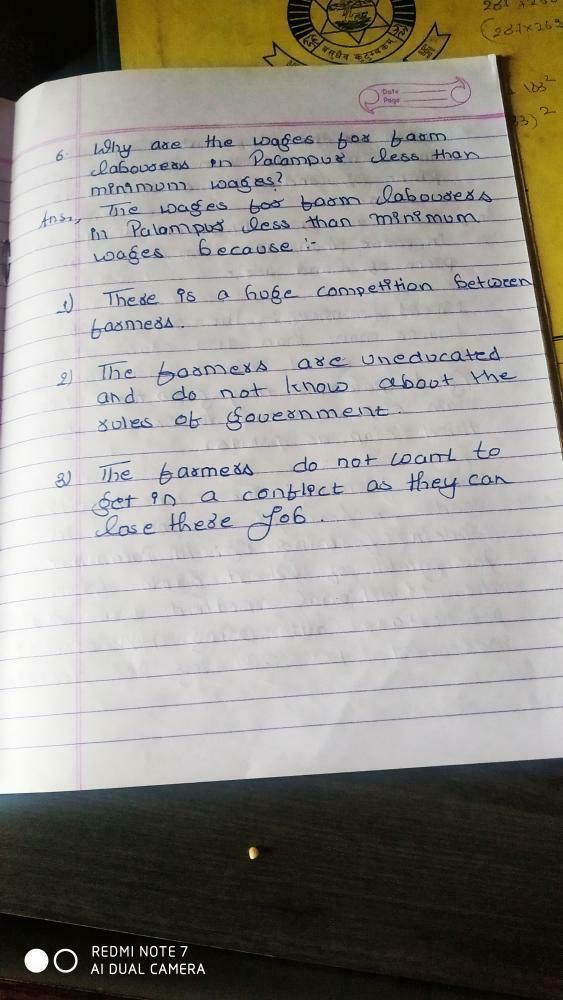 Date
Page
6. Why are the wages for farm
labourers in Palampur less than
minimum wages?
Ans., The wages for farm labourers
in Palampur less than minimum
wages because :-
1) There is a huge competition between
farmers.
2) The farmers are uneducated
and do not know about the
rules of government.
3) The farmers do not want to
get in a conflict as they can
lose there job.
वसुधैव कुटुम्बकम्
REDMI NOTE 7
AI DUAL CAMERA